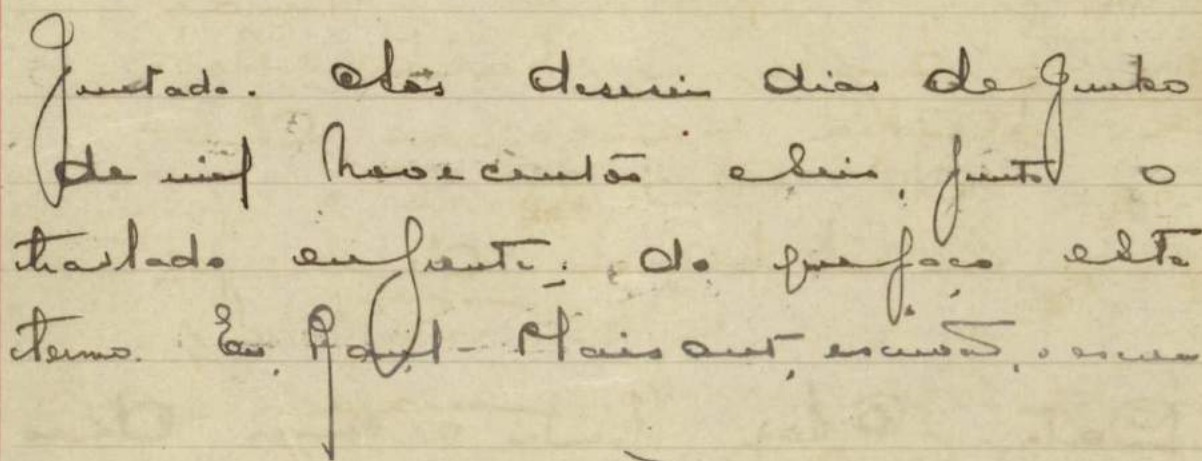 Juntada. Aos deseseis dias de Junho
de mil novecentos e seis, junto o
traslado em frente; do que faço este
termo. Eu, Raul Plaisant, escrivão, o escrevi